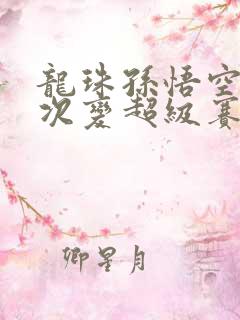 龍珠孫悟空
次變超級賽
卿星月